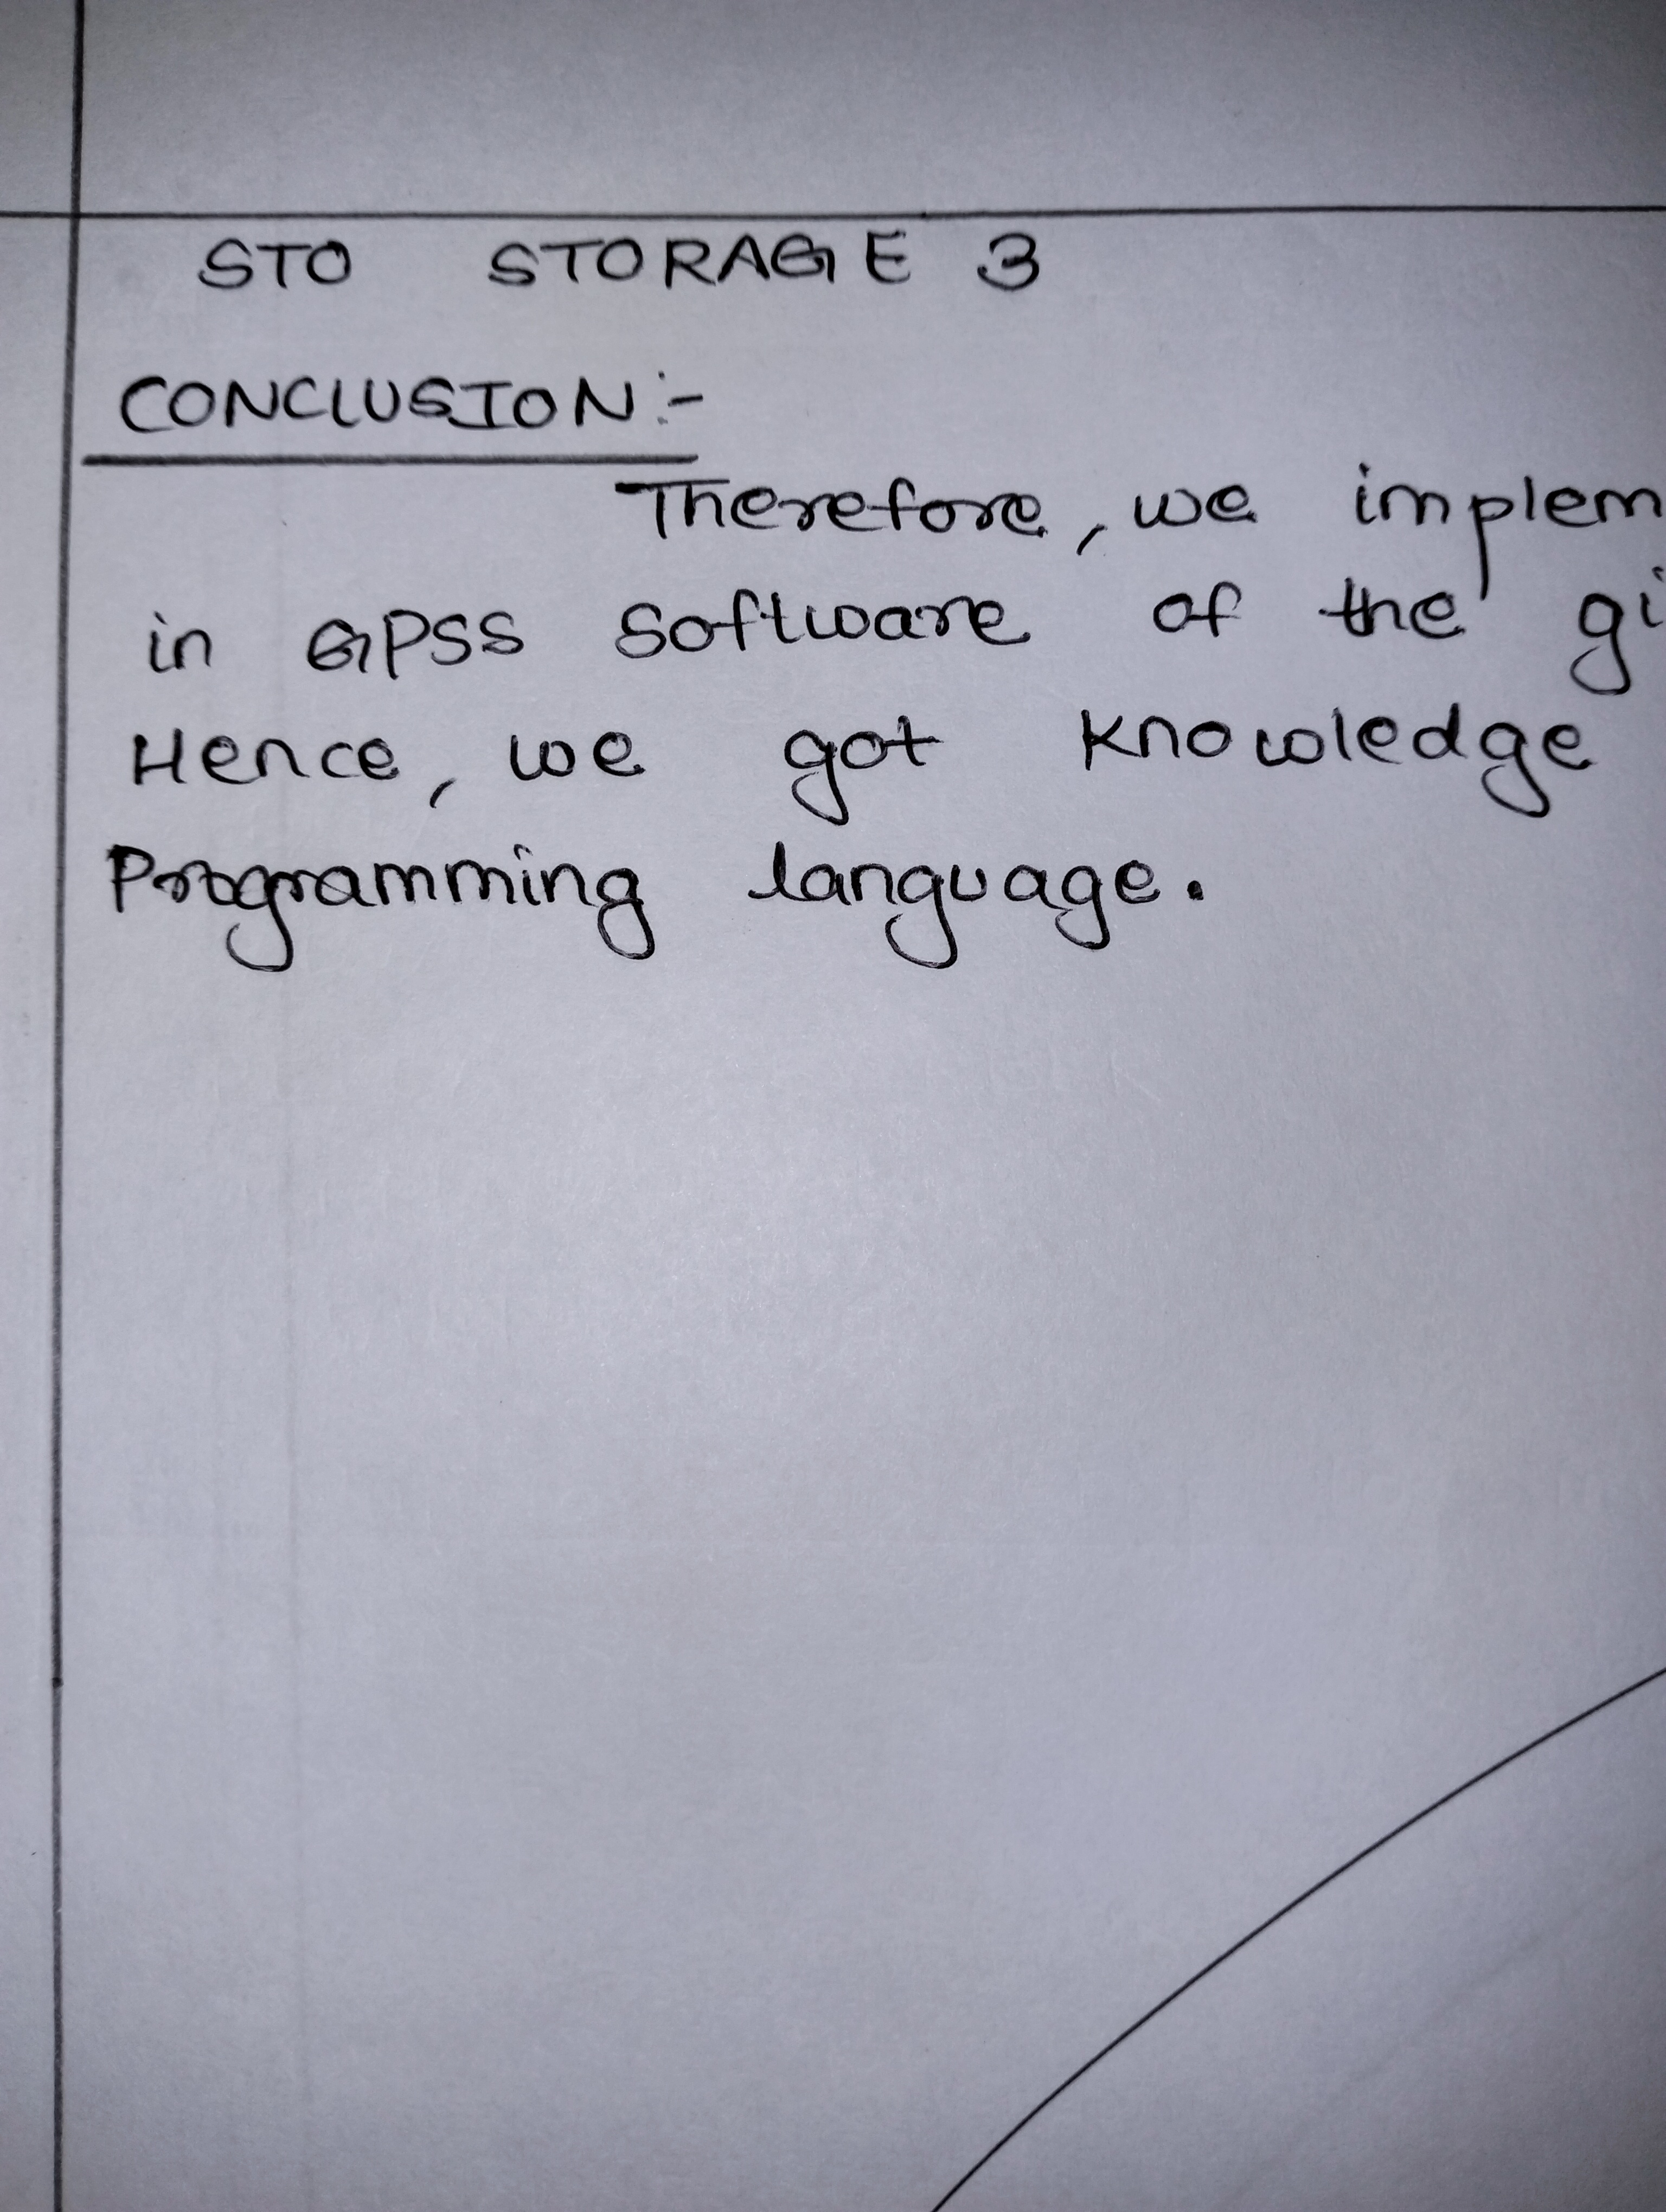 STO STORAGE 3
CONCLUSION:-
Therefore, we implem
in GPSS Software of the gi
Hence, we got knowledge
Programming language.